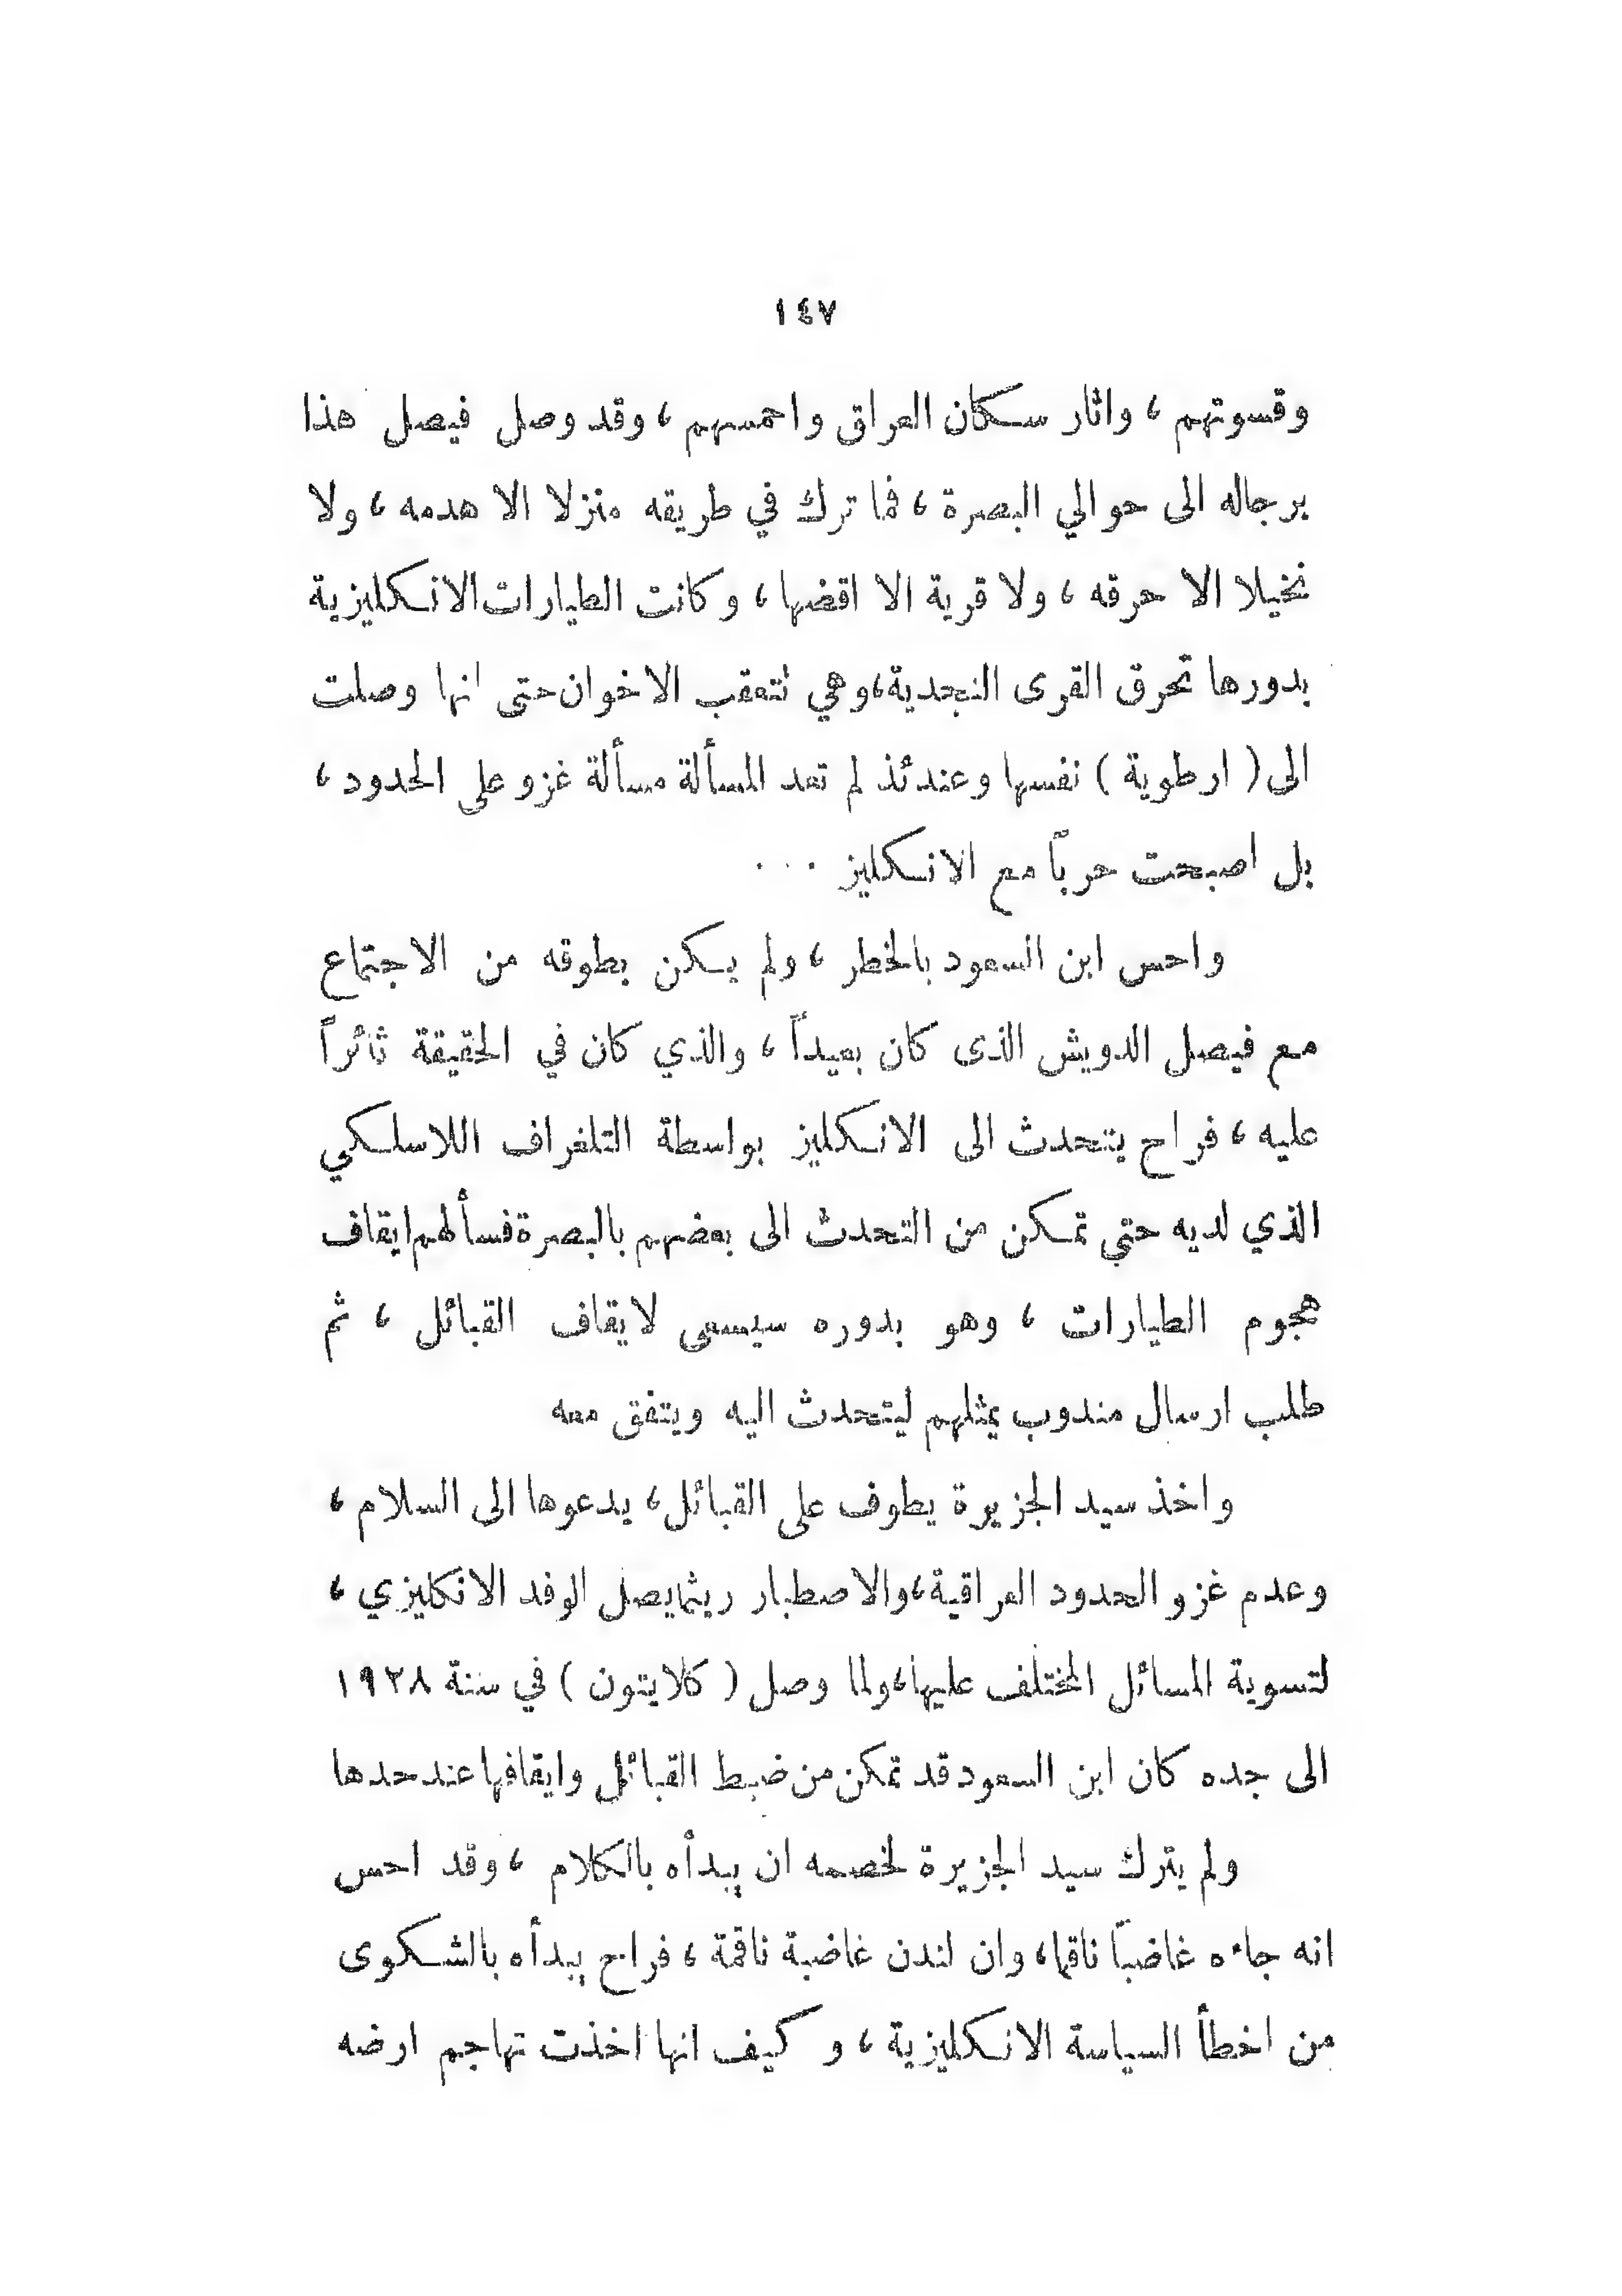 ١٤٧
وقسوتهم ، واثار سكان العراق واحمسهم ، وقد وصل فيصل هذا
برجاله الى حوالي البصرة ، فما ترك في طريقه منزلا الا هدمه ، ولا
نخيلا الا حرقه ، ولا قرية الا اقضها ، وكانت الطيارات الانكليزية
بدورها تحرق القرى النجدية، وهي تتعقب الاخوان حتى انها وصلت
الى ( ارطوية ) نفسها وعندئذ لم تعد المسألة مسألة غزو على الحدود ،
بل اصبحت حرباً مع الانكليز . . .
واحس ابن السعود بالخطر ، ولم يكن بطوقه من الاجتماع
مع فيصل الدويش الذى كان بعيداً ، والذي كان في الحقيقة ثائراً
عليه ، فراح يتحدث الى الانكليز بواسطة التلغراف اللاسلكي
الذي لديه حتى تمكن من التحدث الى بعضهم بالبصرة فسألهم ايقاف
هجوم الطيارات ، وهو بدوره سيسعى لايقاف القبائل ، ثم
طلب ارسال مندوب يمثلهم ليتحدث اليه ويتفق معه
واخذ سيد الجزيرة يطوف على القبائل ، يدعوها الى السلام ،
وعدم غزو الحدود العراقية، والاصطبار ريثما يصل الوفد الانكليزي ،
لتسوية المسائل المختلف عليها، ولما وصل ( كلايتون ) في سنة ١٩٢٨
الى جده كان ابن السعود قد تمكن من ضبط القبائل وايقافها عند حدها
ولم يترك سيد الجزيرة لخصمه ان يبدأه بالكلام ، وقد احس
انه جاءه غاضباً ناقما، وان لندن غاضبة ناقمة ، فراح يبدأه بالشكوى
من اخطأ السياسة الانكليزية ، وكيف انها اخذت تهاجم ارضه